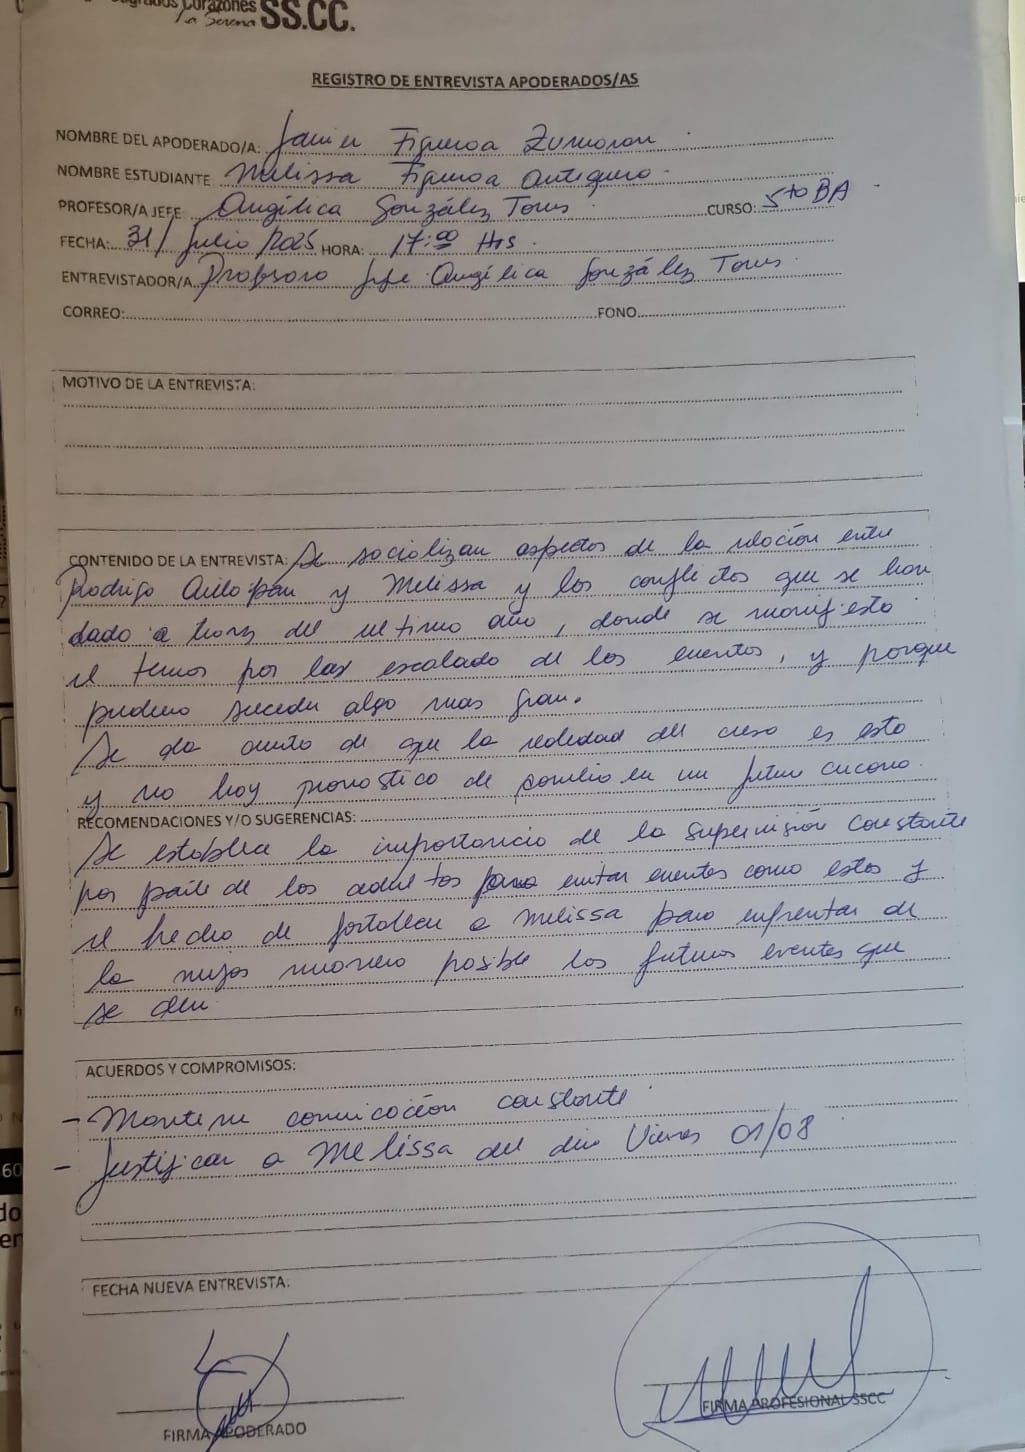 Sagrados Corazones
La Serena SS.CC.
REGISTRO DE ENTREVISTA APODERADOS/AS
NOMBRE DEL APODERADO/A: Javier Figueroa Zumoran
NOMBRE ESTUDIANTE Melissa Figueroa Antequera
PROFESOR/A JEFE Angélica González Torres CURSO: 5to BA
FECHA: 31/ Julio /2025 HORA: 17:00 Hrs.
ENTREVISTADOR/A Profesora Jefe Angélica González Torres
CORREO: FONO
MOTIVO DE LA ENTREVISTA:
CONTENIDO DE LA ENTREVISTA: Se socializan aspectos de la relación entre
Rodrigo y Melissa y los conflictos que se han
dado a travs del ultimo año, donde se manifiesta
el temor por las escalada de los eventos, y porque
pudiera suceder algo mas grave.
Se da cuenta de que la realidad del curso es esta
y no hay pronostico de cambio en un futuro cercano.
RECOMENDACIONES Y/O SUGERENCIAS:
Se establece la importancia de la supervisión constante
por parte de los adultos para evitar eventos como estos y
el hecho de fortalecer a Melissa para enfrentar de
la mejor manera posible los futuros eventos que
se den
ACUERDOS Y COMPROMISOS:
- Mantener comnicación constante
- Justificar a Melissa del dia Viernes 01/08
FECHA NUEVA ENTREVISTA:
FIRMA APODERADO
FIRMA PROFESIONAL SSCC
60